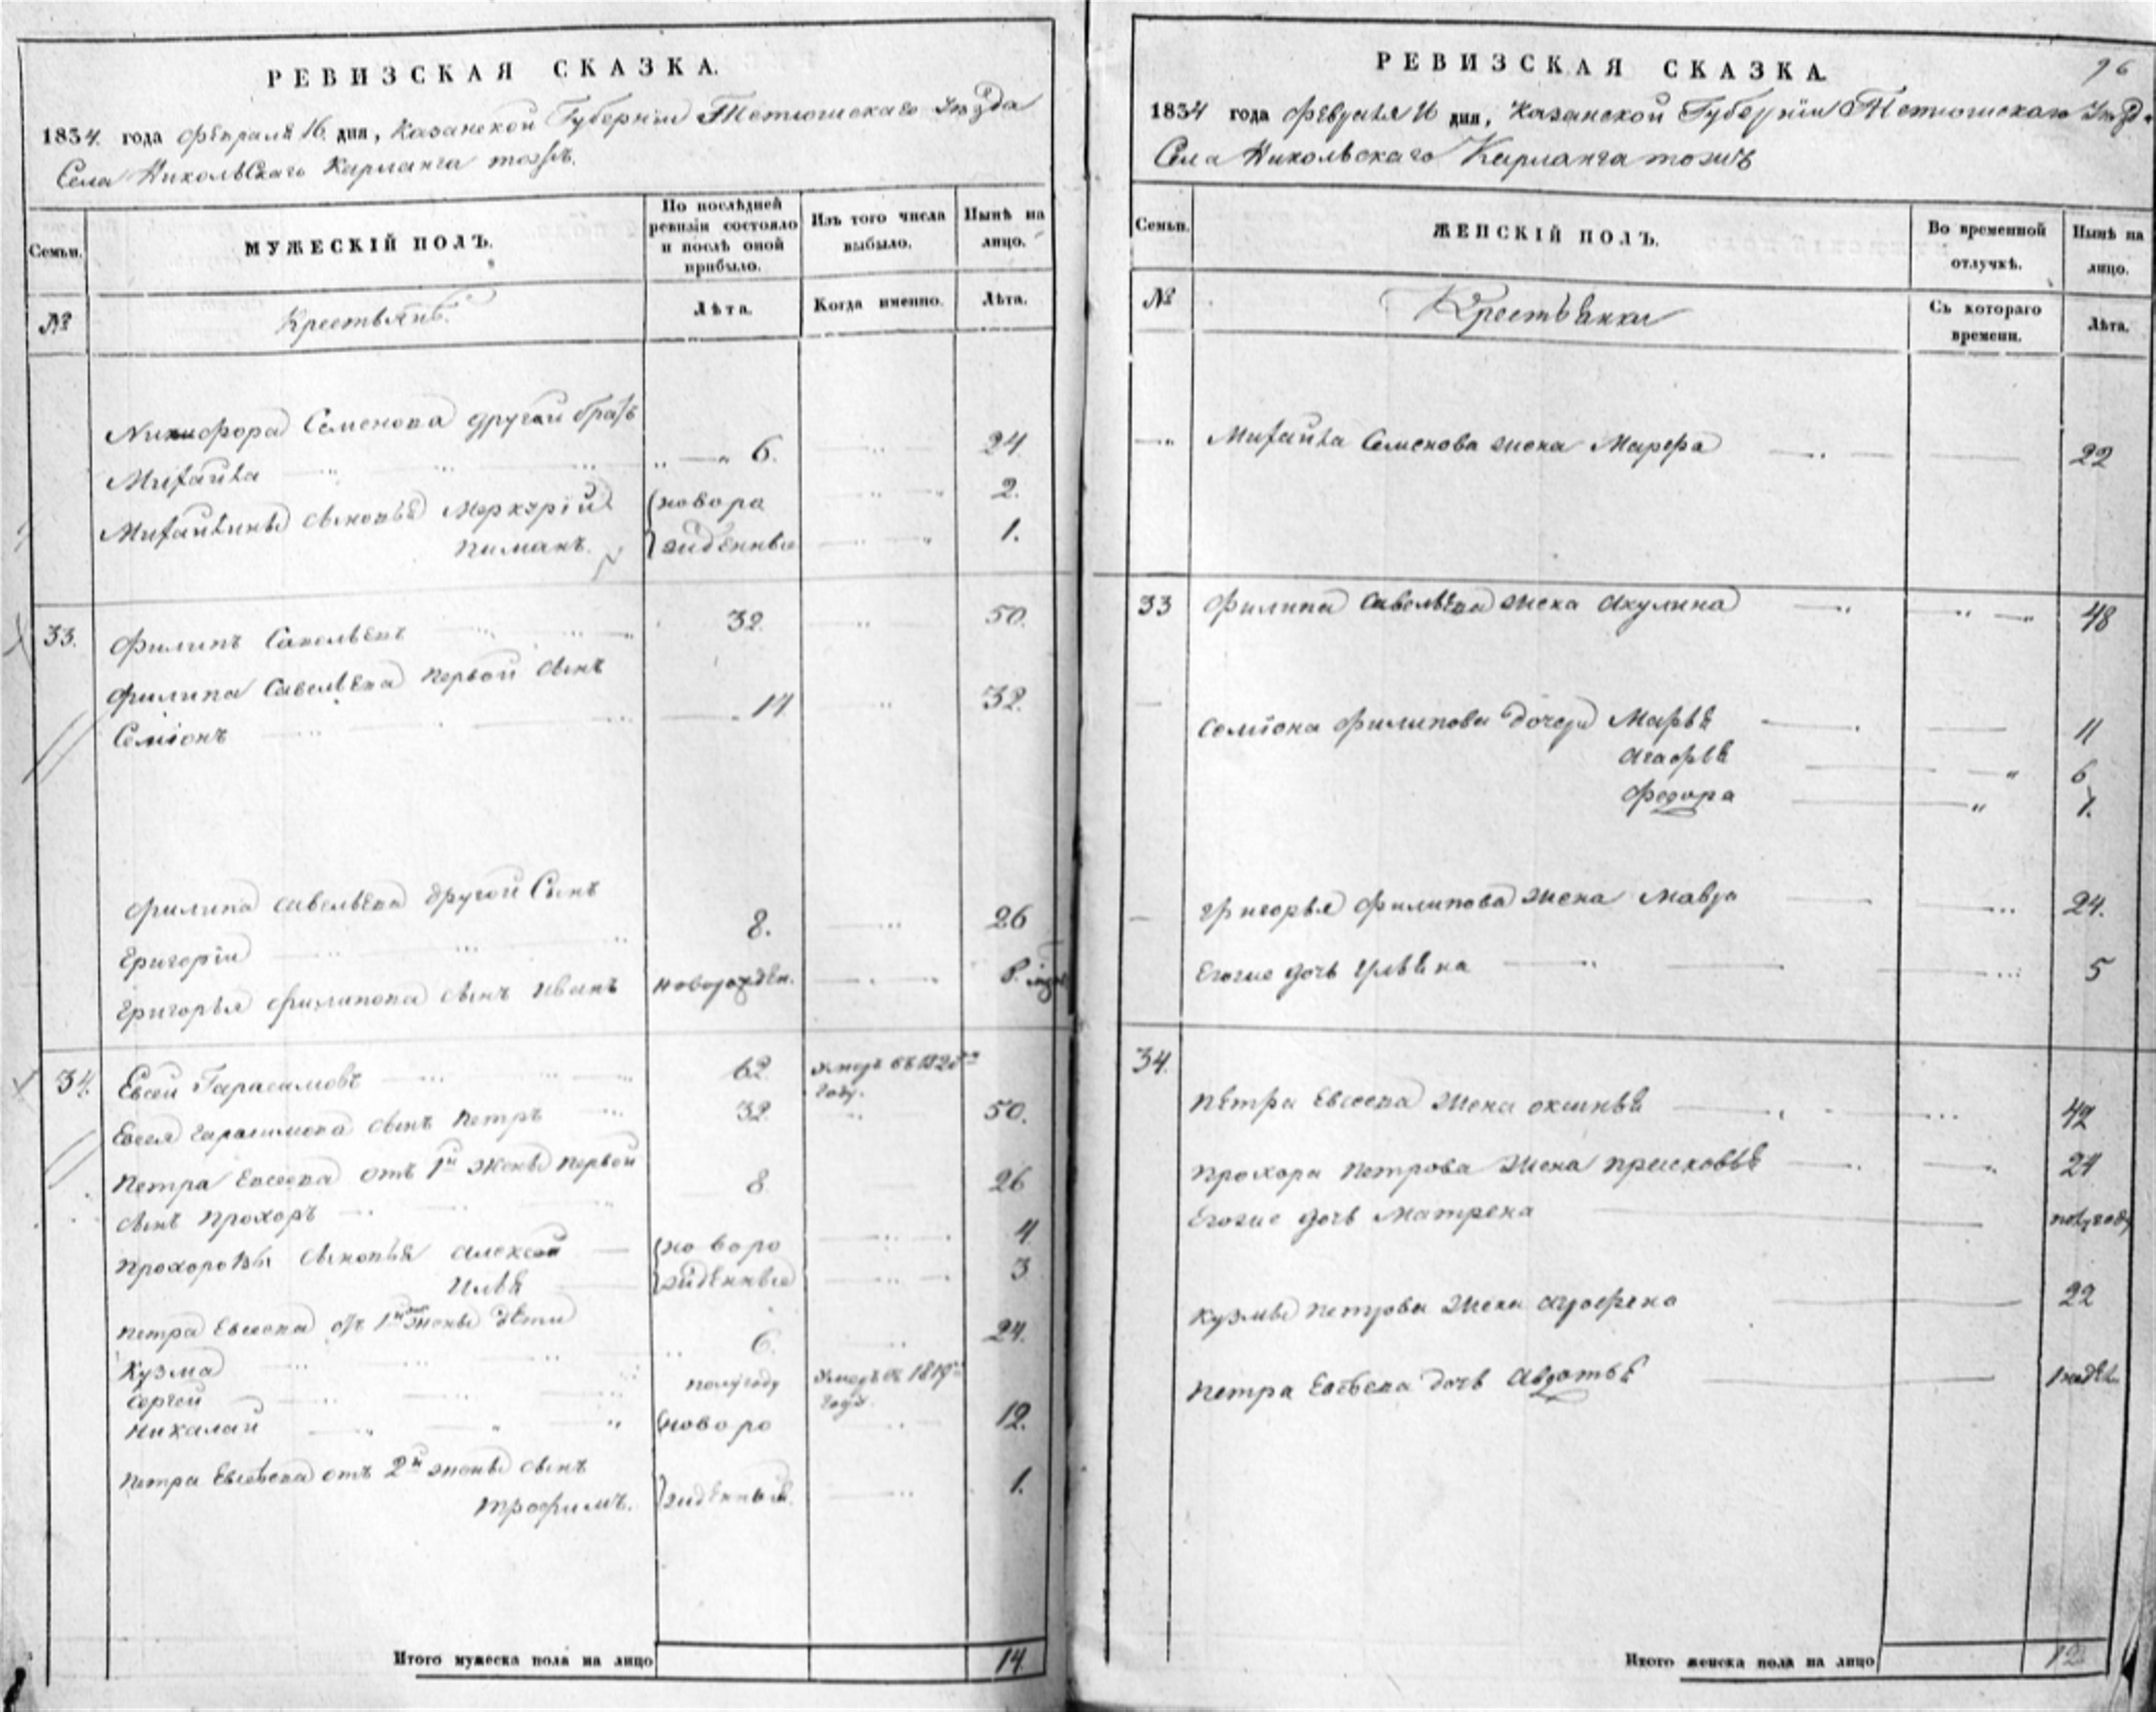 РЕВИЗСКАЯ СКАЗКА.
1834. года Февраля 16. дня, Казанской Губернiи Тетюшскаго Уѣзда
Села Никольскаго Карланга тожъ.
Семьи.
МУЖЕСКIЙ ПОЛЪ.
По послѣдней ревизiи состояло и послѣ оной прибыло.
Изъ того числа выбыло.
Нынѣ на лицо.
№
Крестьянъ.
Лѣта.
Когда именно.
Лѣта.
Никифора Семенова другой братъ
Михайла 6. 24
Михайлины сыновья Меркурiй новоро 2.
Пиманъ. жденные 1.
33. Филипъ Савельевъ 32. 50.
Филипа Савельева первой сынъ
Семiонъ 14 32.
Филипа Савельева другой Сынъ
Григорiй 8. 26
Григорья Филипова сынъ Иванъ новорожден.
34. Евсей Гарасимовъ 62 умеръ въ
году.
Евсея Гарасимова сынъ Петръ 32. 50.
Петра Евсеева отъ 1й жены первой
сынъ Прохоръ 8 26
Прохоровы сыновья Алексей новоро 4
Илья жденные 3
Петра Евсеева отъ 1й жены дети
Кузма 6. 24.
Сергей полугоду умеръ въ 1819м
году.
Николай новоро 12.
Петра Евсеева отъ 2й жены сынъ
Трофимъ. жденный. 1.
Итого мужеска пола на лицо 14
96
РЕВИЗСКАЯ СКАЗКА.
1834 года Февраля 16 дня, Казанской Губернiи Тетюшскаго Уѣзда
Села Никольскаго Карланга тожъ
Семьи.
ЖЕНСКIЙ ПОЛЪ.
Во временной отлучкѣ.
Нынѣ на лицо.
№
Крестьянки
Съ котораго времени.
Лѣта.
Михайла Семенова жена Марфа 22
33 Филипа Савельева жена Акулина 48
Семiона Филипова дочери Марья 11
Агафья 6
Федора 1.
Григорья Филипова жена Мавра 24.
Егоже дочь Ульяна 5
34.
Петра Евсеева жена Оксинья 42
Прохора Петрова жена Присковья 24
Егоже дочь Матрена полугоду
Кузмы Петрова жена Аграфена 22
Петра Евсеева дочь Авдотья
Итого женска пола на лицо 12